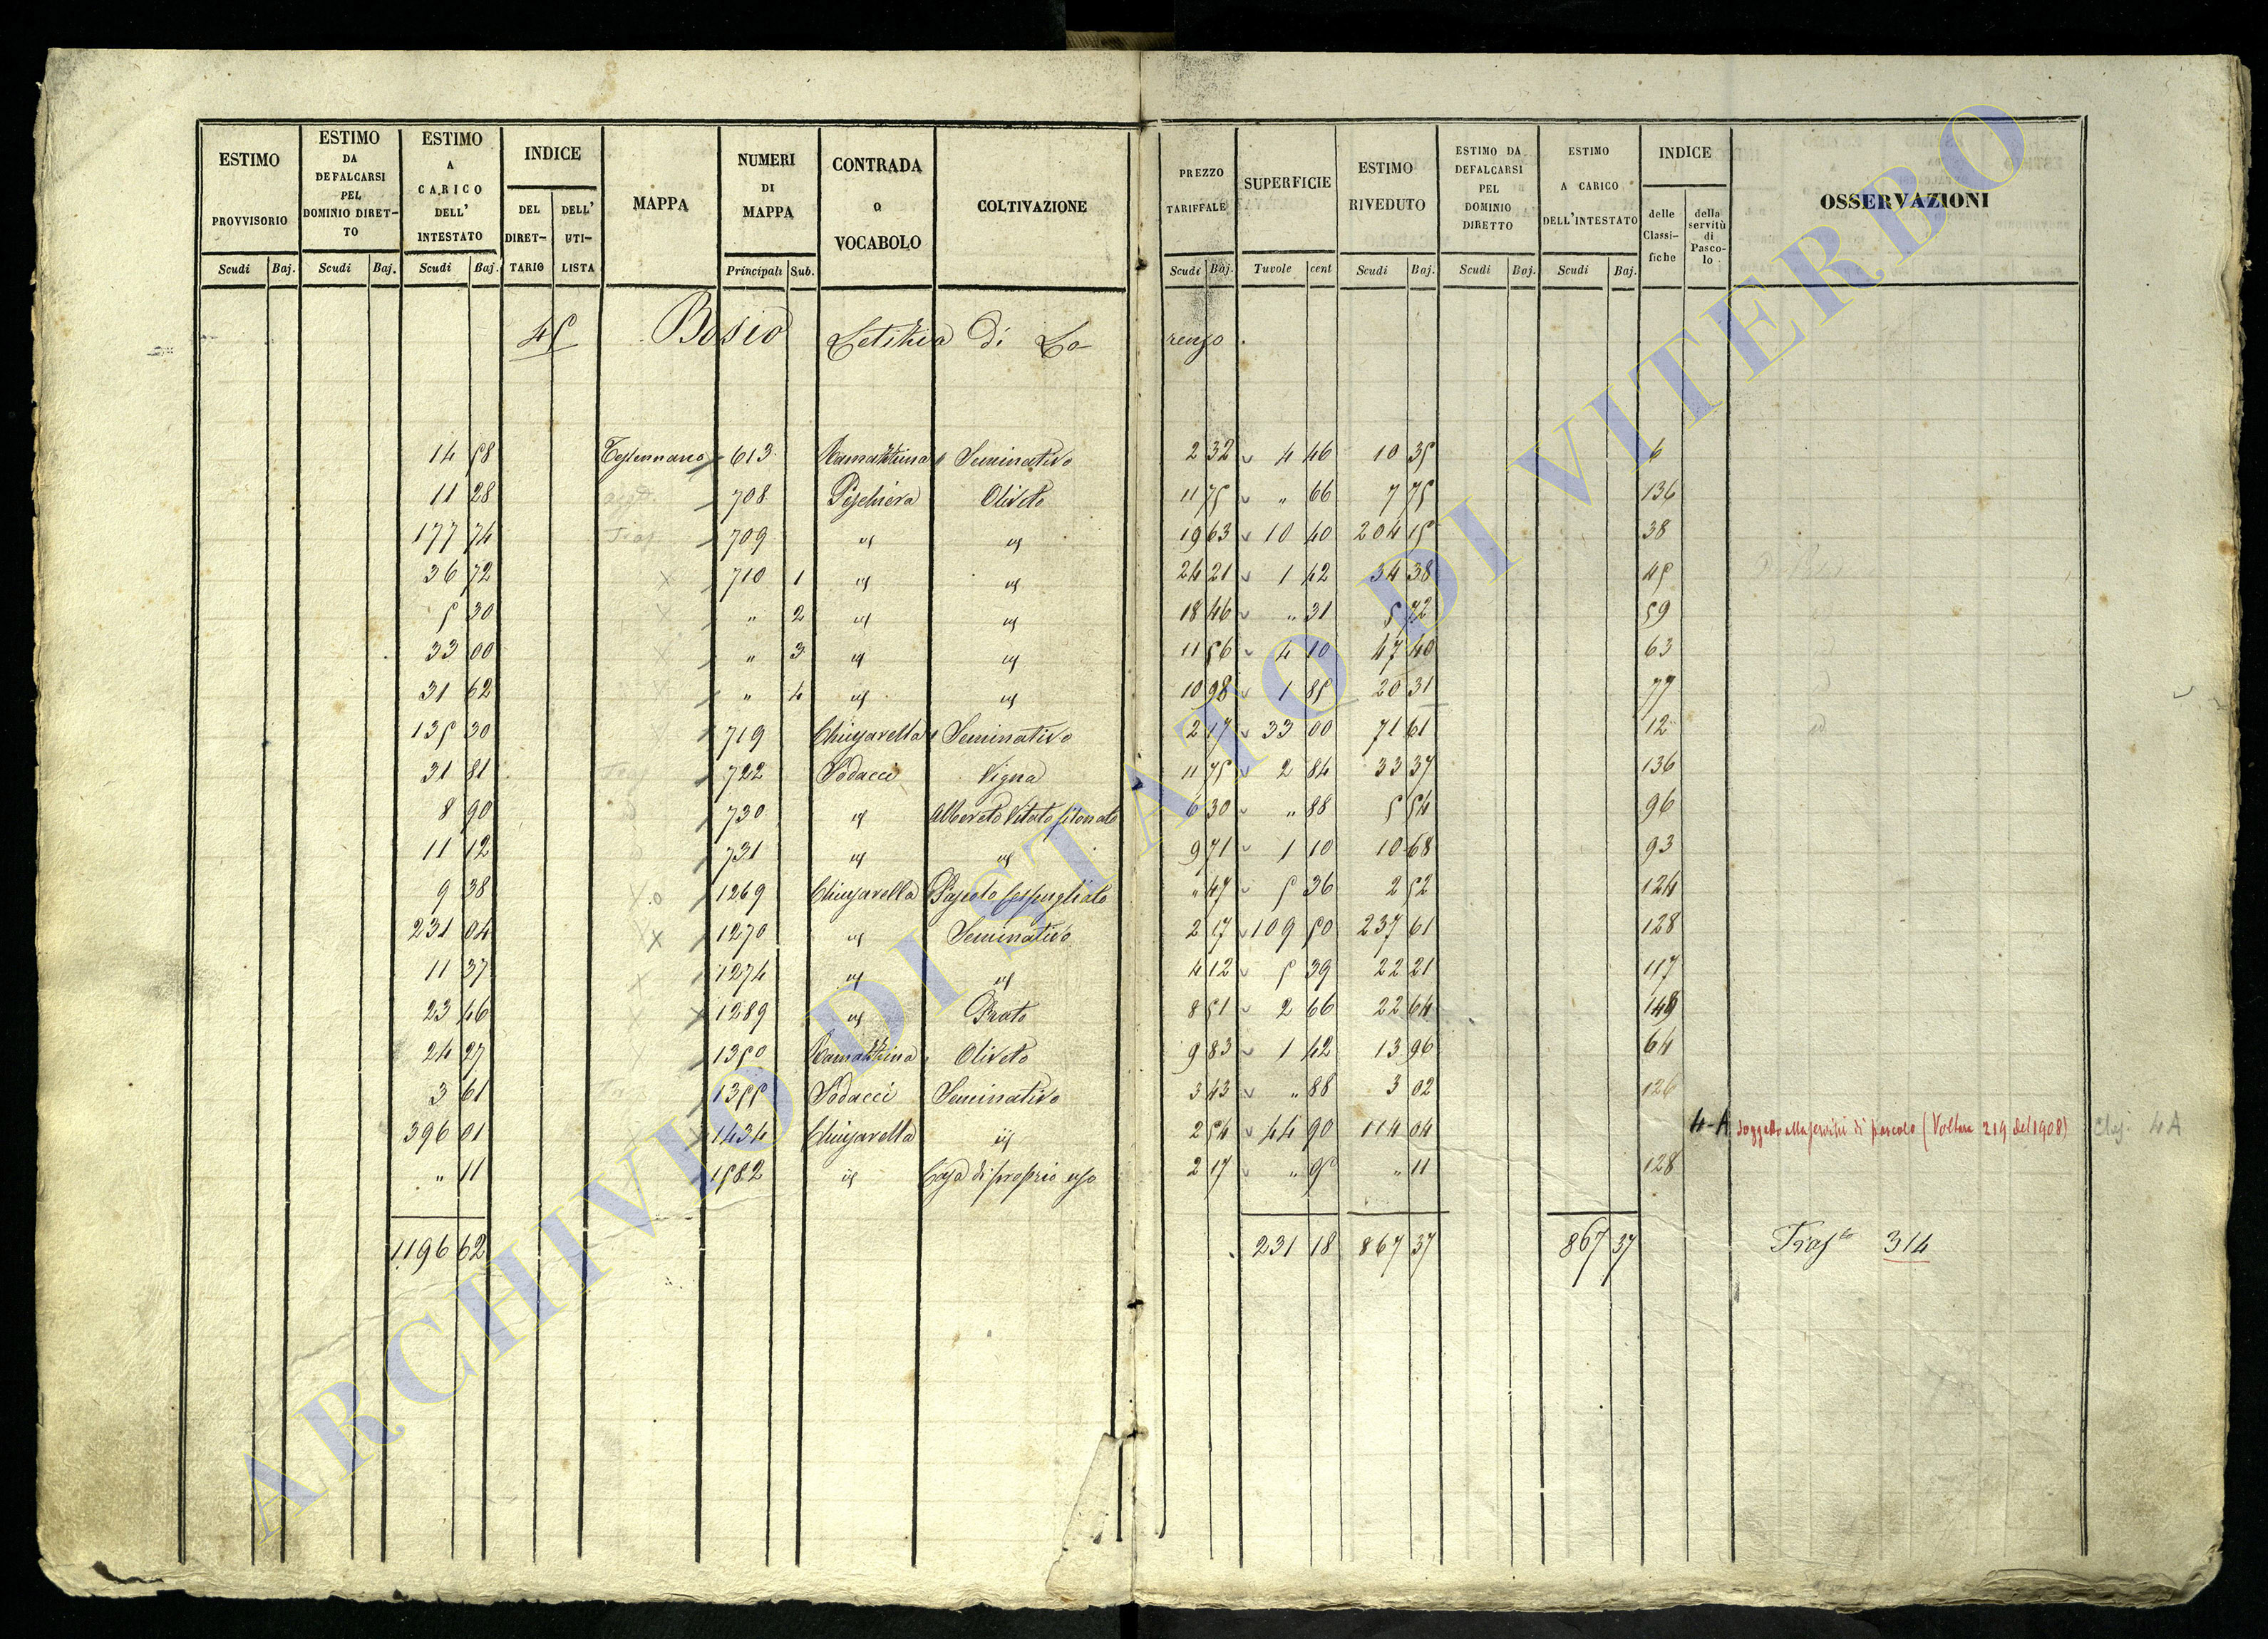 ESTIMO PROVVISORIO Scudi Baj.
ESTIMO DA DEFALCARSI PEL DOMINIO DIRET-TO Scudi Baj.
ESTIMO A CARICO DELL' INTESTATO Scudi Baj.
INDICE DEL DIRET-TARIO DELL' UTI-LISTA
MAPPA
NUMERI DI MAPPA Principali Sub.
CONTRADA o VOCABOLO
COLTIVAZIONE
PREZZO TARIFFALE Scudi Baj.
SUPERFICIE Tavole cent
ESTIMO RIVEDUTO Scudi Baj.
ESTIMO DA DEFALCARSI PEL DOMINIO DIRETTO Scudi Baj.
ESTIMO A CARICO DELL'INTESTATO Scudi Baj.
INDICE delle Classi-fiche della servitù di Pasco-lo
OSSERVAZIONI
45 Bosio Letizia di Lo renzo.
14 58 613 Seminativo 2 32 4 46 10 35 6
11 28 708 Peschiera Oliveto 11 75 " 66 7 75 136
177 74 709 id id 19 63 10 40 204 15 38
36 72 710 1 id id 24 21 1 42 34 38 45
5 30 " 2 id id 18 46 " 31 5 72 59
33 00 " 3 id id 11 56 4 10 47 40 63
31 62 " 4 id id 10 98 1 85 20 31 77
135 30 719 Chiusarella Seminativo 2 17 33 00 71 61 12
31 81 722 Sodacci Vigna 11 75 2 84 33 37 136
8 90 730 id Alberato Vitato filonato 6 30 " 88 5 54 96
11 12 731 id id 9 71 1 10 10 68 93
9 38 1269 Chiusarella Pascolo cespugliato " 47 5 36 2 52 124
231 04 1270 id Seminativo 2 17 109 50 237 61 128
11 37 1274 id id 4 12 5 39 22 21 117
23 46 1289 id Prato 8 51 2 66 22 64 149
24 27 1350 Oliveto 9 83 1 42 13 96 64
3 61 1355 Sodacci Seminativo 3 43 " 88 3 02 126
396 01 1434 Chiusarella id 2 54 44 90 114 04 4-A soggetto alla servitù di pascolo (Voltura 219 del 1908) Clas. 4A
" 11 1582 id Casa di proprio uso 2 17 " 5 " 11 128
1196 62 231 18 867 37 867 37 Trasto 314
ARCHIVIO DI STATO DI VITERBO